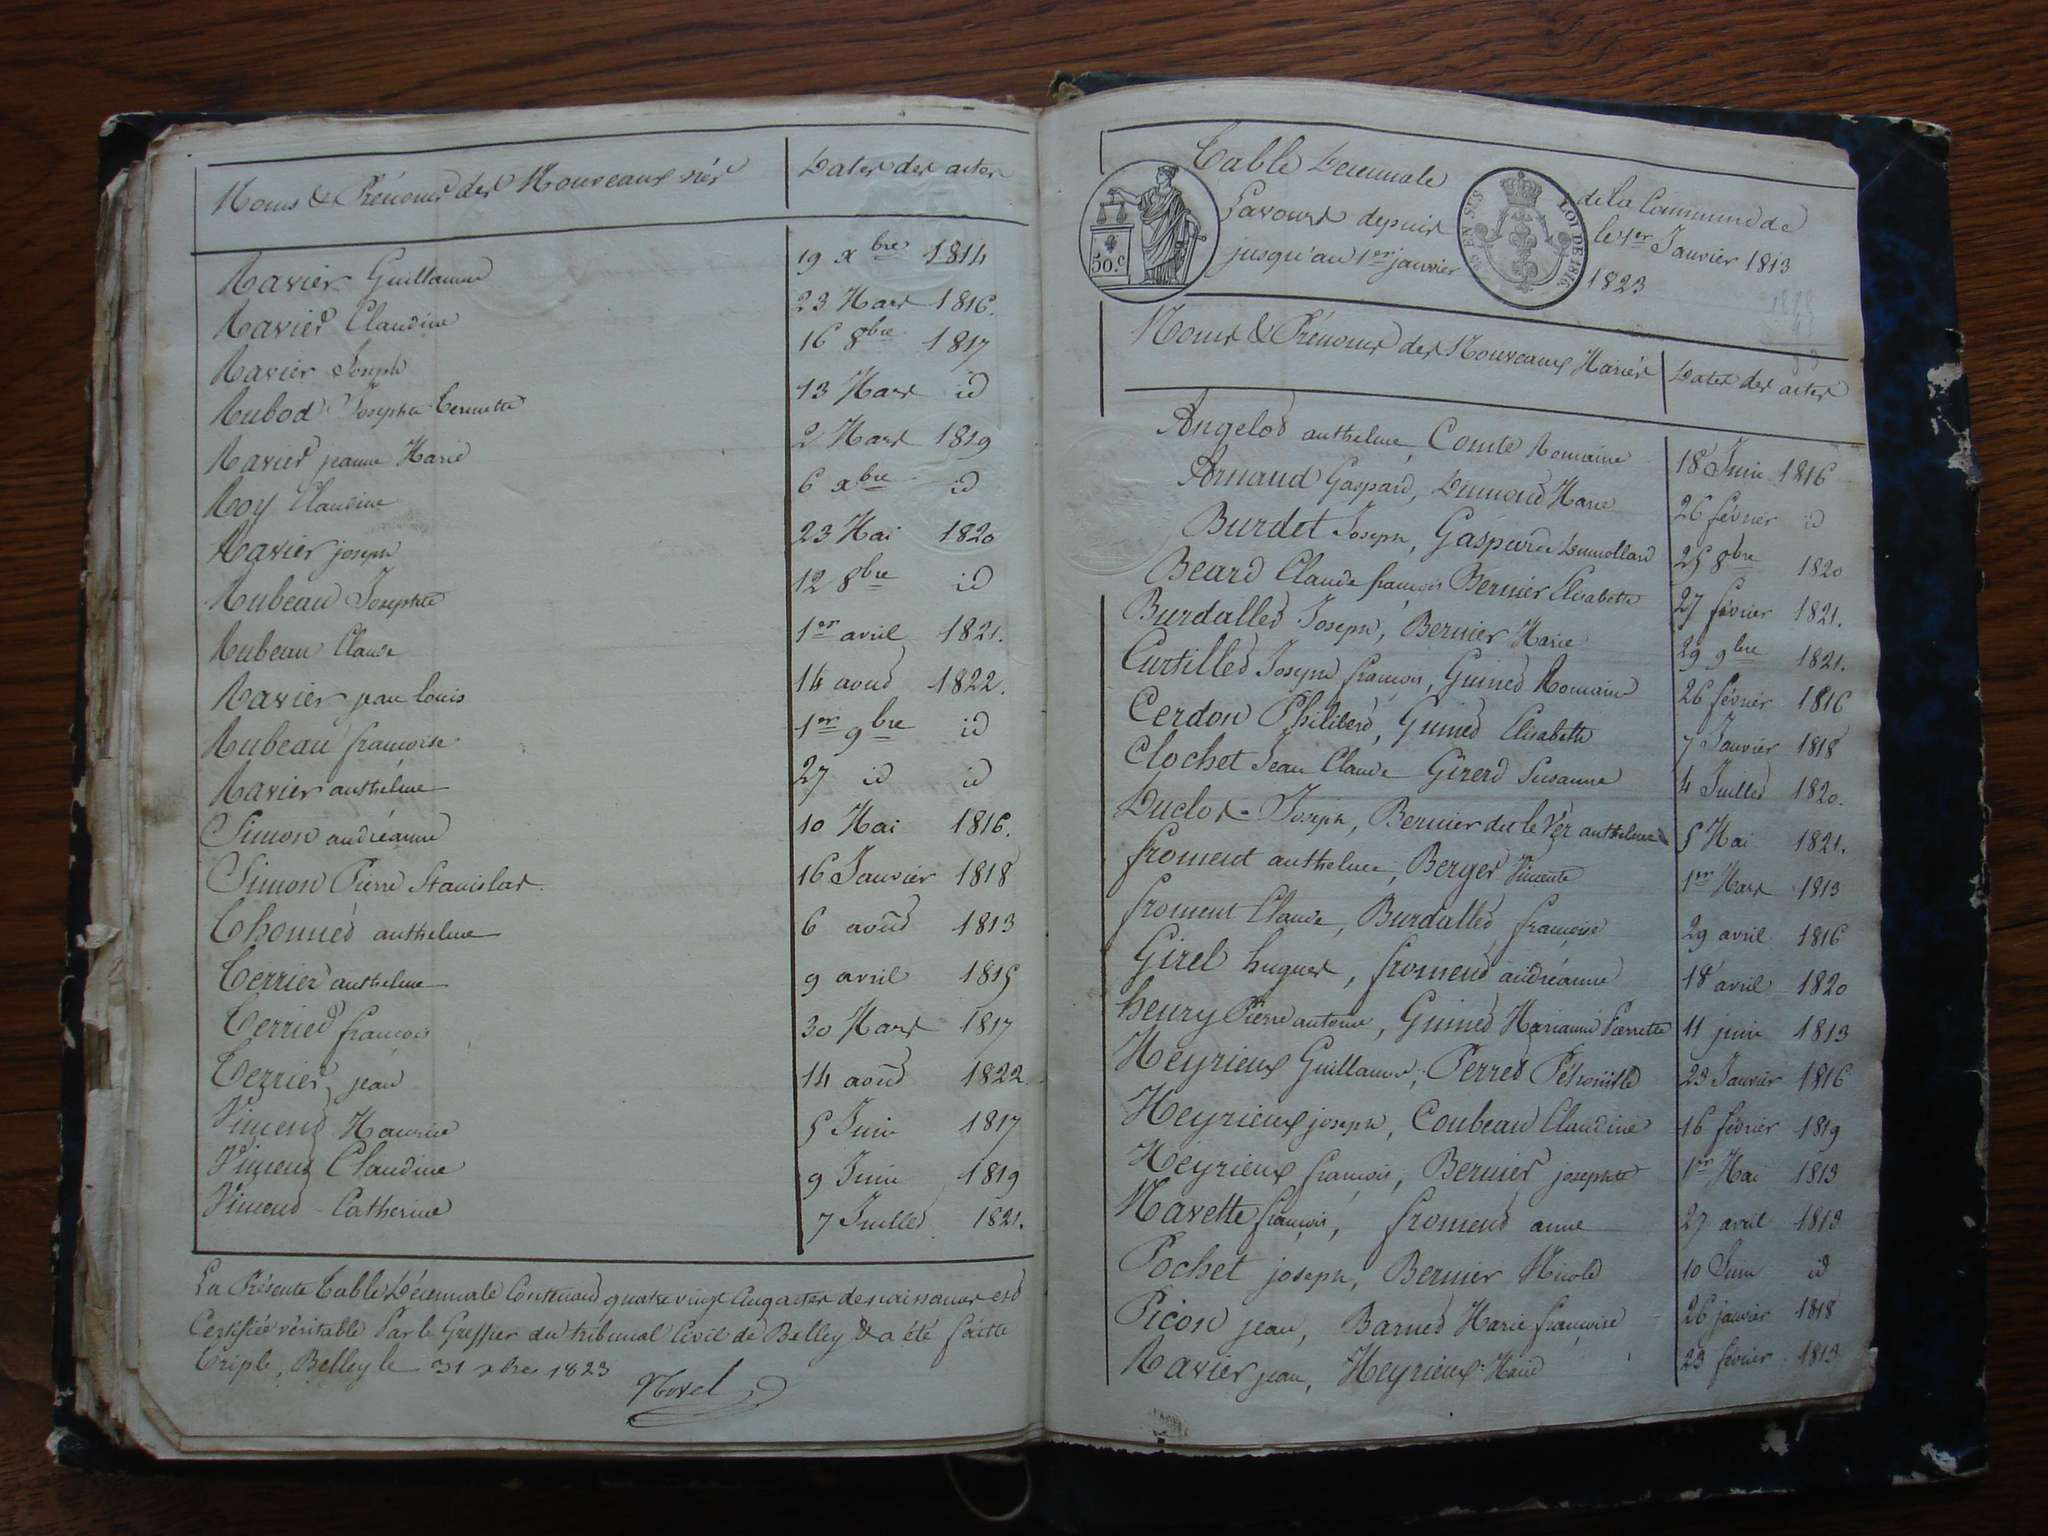 Noms & Prénoms des Nouveaux nés Dates des actes
Ravier Guillaume 19 xbre 1814
Ravier Claudine 23 Mars 1816.
Ravier Joseph 16 8bre 1817
Rubod Josephte 13 Mars id
Ravier jeanne Marie 2 Mars 1819
Roy Claudine 6 xbre id
Ravier joseph 23 Mai 1820
Rubeau Josephte 12 8bre id
Rubeau Claude 1er avril 1821.
Ravier jean louis 14 aout 1822.
Rubeau francoise 1er 9bre id
Ravier anthelme 27 id id
Simon andréanne 10 Mai 1816.
Simon Pierre Stanislas 16 Janvier 1818
Thonnet anthelme 6 août 1813
Terrier anthelme 9 avril 1815
Terrier francois 30 Mars 1817
Terrier jean 14 août 1822.
Viment Maurice 5 Juin 1817
Viment Claudine 9 Juin 1819
Viment Catherine 7 Juillet 1821.
La Présente table Décennale Contenant quatre vingt cinq actes de naissances est
Certifiée véritable Par le Greffier du tribunal Civil de Belley & a été faitte
triple, Belley le 31 xbre 1823
Table Décennale de la Commune de
Lavours depuis le 1er Janvier 1813
jusqu'au 1er janvier 1823
50.c
EN SUS
LOI DE 1816
Noms & Prénoms des Nouveaux Mariés Dates des actes
Angelot anthelme, Comte Romaine 18 Juin 1816
Arnaud Gaspard, Dumond Marie 26 février id
Burdet Joseph, Gaspard 25 8bre 1820
Beard Claude francois Bernier Elisabeth 27 février 1821.
Burdallet Joseph, Bernier Marie 29 9bre 1821.
Curtillet Joseph francois, Guinet Romaine 26 février 1816
Cerdon Philibert, Guinet Elisabeth 7 Janvier 1818
Clochet Jean Claude Girerd Susanne 4 Juillet 1820.
Duclos Joseph, Bernier dit le Vez anthelme 5 Mai 1821.
froment anthelme, Berger Vincente 1er Mars 1813
froment Claude, Burdallet françoise 29 avril 1816
Girel hugues, froment andréanne 18 avril 1820
henry Pierre antoine, Guinet Marianne Pierrette 11 juin 1813
Meyrieux Guillaume, Perret Petronille 23 Janvier 1816
Meyrieux joseph, Coubeau Claudine 16 février 1819
Meyrieux francois, Bernier josephte 1er Mai 1813
Navette francois, froment anne 27 avril 1813
Pochet joseph, Bernier Nicole 10 Juin id
Picon jean, Barnet Marie françoise 26 janvier 1818
Ravier jean, Meyrieux Marie 23 février 1813